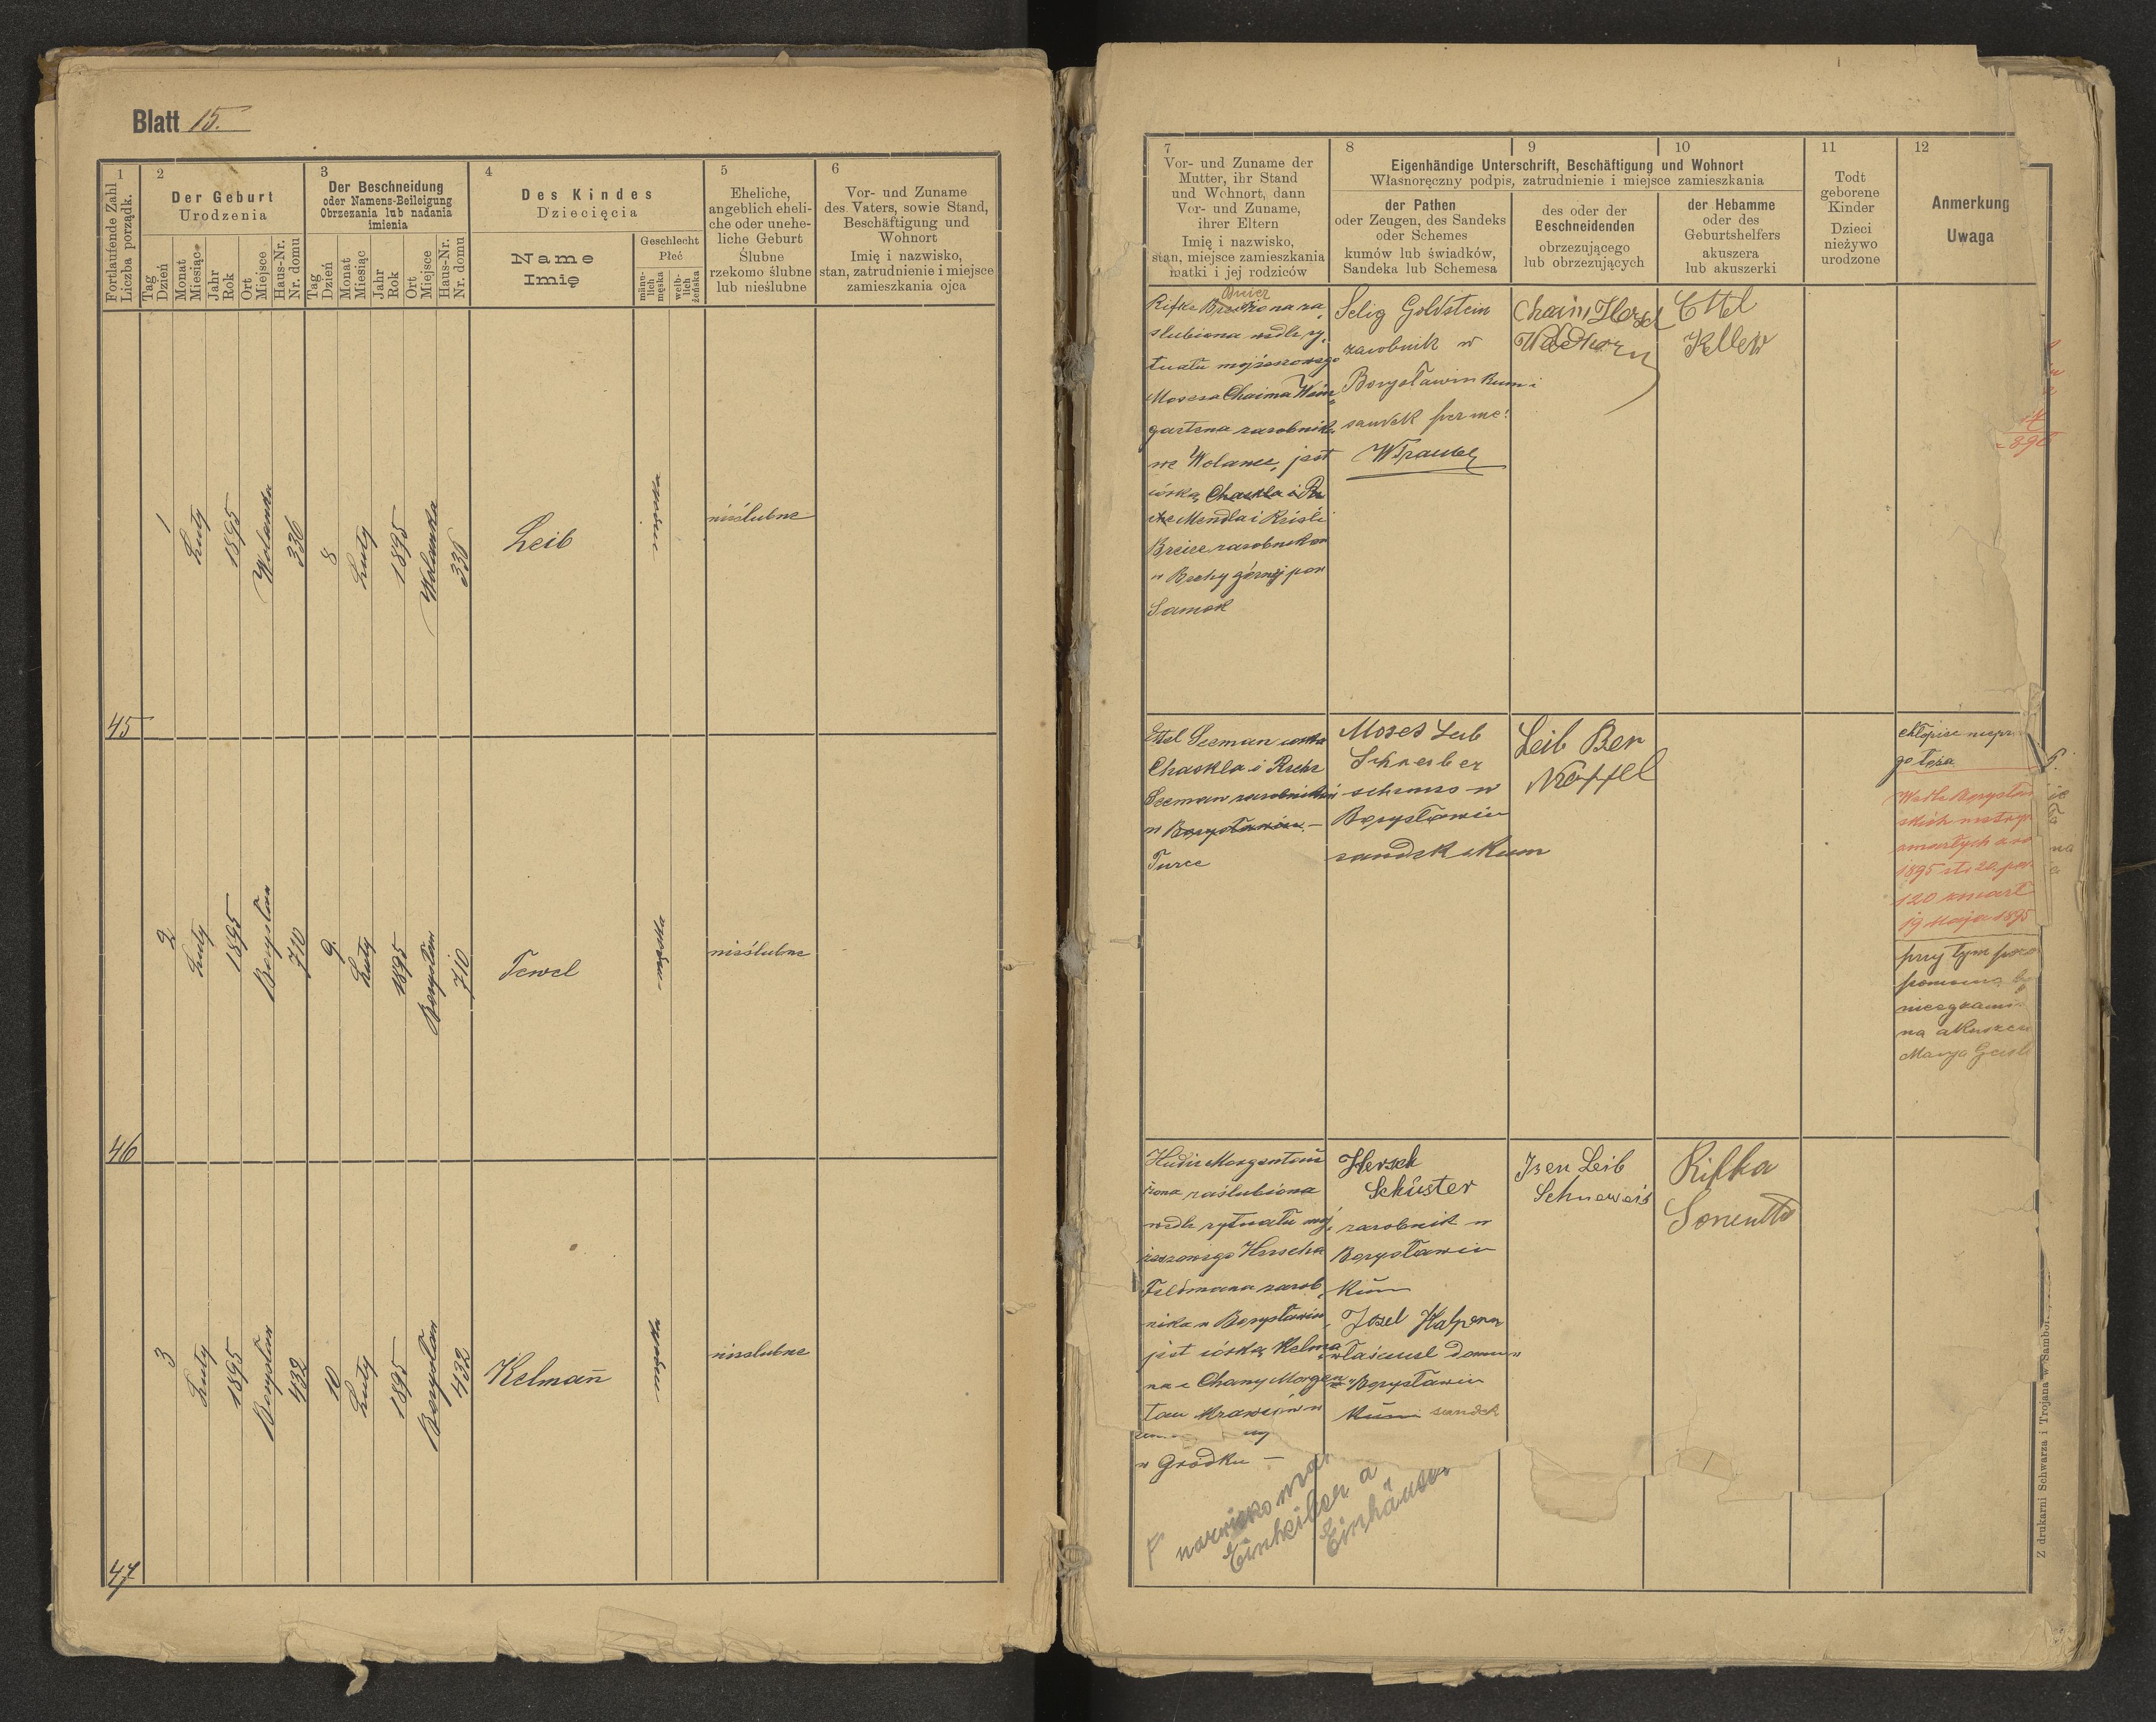 Blatt 15.
1
Fortlaufende Zahl
Liczba porządk.
2
Der Geburt
Urodzenia
Tag
Dzień
Monat
Miesiąc
Jahr
Rok
Ort
Miejsce
Haus-Nr.
Nr. domu
3
Der Beschneidung
oder Namens-Beileigung
Obrzezania lub nadania
imienia
Tag
Dzień
Monat
Miesiąc
Jahr
Rok
Ort
Miejsce
Haus-Nr.
Nr. domu
4
Des Kindes
Dziecięcia
Name
Imię
Geschlecht
Płeć
männ-
lich
męska
weib-
lich
żeńska
5
Eheliche,
angeblich eheli-
che oder unehe-
liche Geburt
Ślubne
rzekomo ślubne
lub nieślubne
6
Vor- und Zuname
des Vaters, sowie Stand,
Beschäftigung und
Wohnort
Imię i nazwisko,
stan, zatrudnienie i miejsce
zamieszkania ojca
45
1
Luty
1895
Wolanka
336
8
Luty
1895
Wolanka
336
Leib
męska
nieślubne
46
2
Luty
1895
Borysław
710
9.
Luty
1895
Borysław
710
Tewel
męska
nieślubne
47
3
Luty
1895
Borysław
432
10
Luty
1895
Borysław
432
Kelman
męska
nieslubne
7
Vor- und Zuname der
Mutter, ihr Stand
und Wohnort, dann
Vor- und Zuname,
ihrer Eltern
Imię i nazwisko,
stan, miejsce zamieszkania
matki i jej rodziców
8
9
10
Eigenhändige Unterschrift, Beschäftigung und Wohnort
Własnoręczny podpis, zatrudnienie i miejsce zamieszkania
der Pathen
oder Zeugen, des Sandeks
oder Schemes
kumów lub świadków,
Sandeka lub Schemesa
des oder der
Beschneidenden
obrzezującego
lub obrzezujących
der Hebamme
oder des
Geburtshelfers
akuszera
lub akuszerki
11
Todt
geborene
Kinder
Dzieci
nieżywo
urodzone
12
Anmerkung
Uwaga
Rifke żona za
ślubiona wedle ry
tuału mojżeszowego
Mosesa Chaima Wein
gartena zarobnika
we Wolance, jest
córką Chaskla i
Mendla i
zarobników
w górnej pow
Sanok
Selig Goldstein
zarobnik w
Borysławiu kum i
sandek per me:
Chaim Hersch
Waldhorn
Ettel
Keller
Ettel Seeman córka
Chaskla i
Seeman zarobników
w Borysławiu –
Turce
Moses Leib
Schreiber
schemes w
Borysławiu
sandek i kum
Leib Ber
chłopiec
1895
120
19 Maja 1895
przy tym
na
Marya
Hudie Morgentau
żona zaślubiona
wedle rytuału moj
żeszowego Herscha
Feldmana zarob
nika w Borysławiu
jest córką Kelma
na i Chany Morgen
tau krawców w
w Gródku –
Hersch
Schuster
zarobnik w
Borysławiu
kum
Josel Halpern
właściciel domu
w Borysławiu
kum i sandek
Isen Leib
Schneweis
Rifka
nazwisko
a
Z drukarni Schwarza i Trojana w Sambor